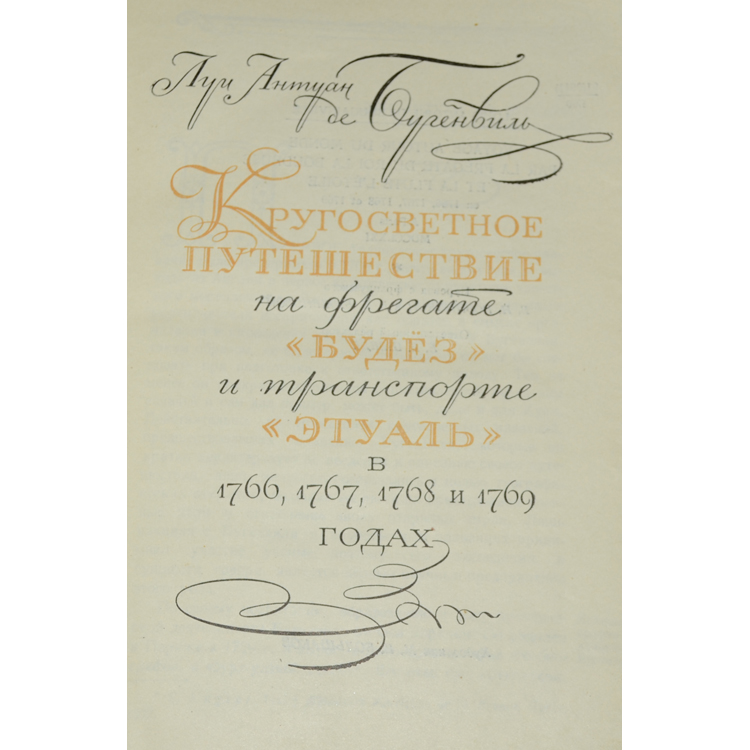 Луи Антуан
де Бугенвиль
Кругосветное
путешествие
на фрегате
«Будёз»
и транспорте
«Этуаль»
в
1766, 1767, 1768 и 1769
годах